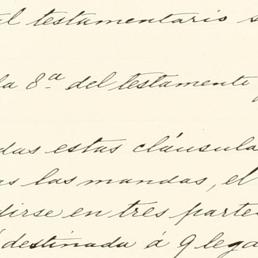 al testamentaris s
la 8.ª del testamento
das estas cláusula
as las mandas, el
dirse en tres parte
destinada á 9 lega